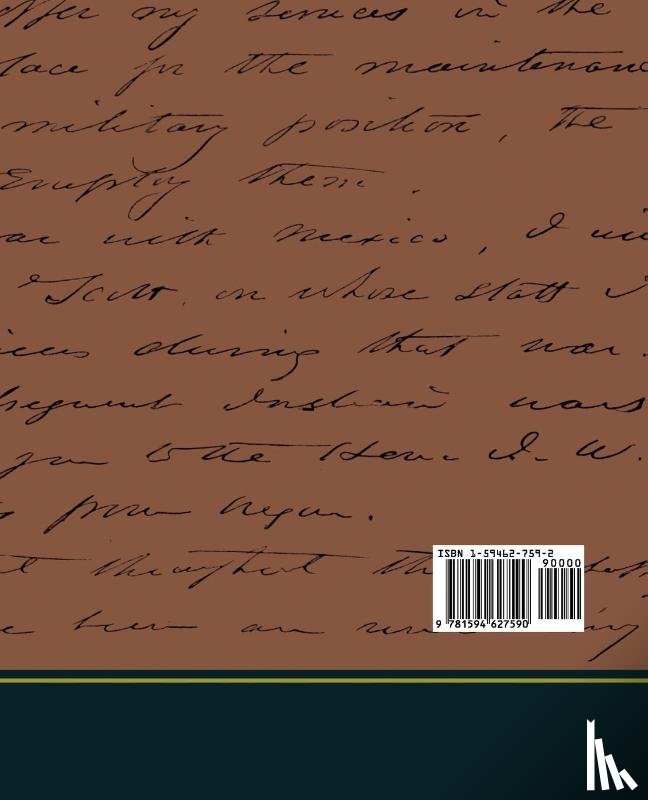 offer my services in the
place for the maintenanc
military position, the
Employ them.
ar with Mexico, I
Scott, on whose staff I
ices during that war.
Indian wars
you to the Hon. I. W.
from Oregon.
t throughout th
e been an
ISBN 1-59462-759-2
90000
9 781594 627590